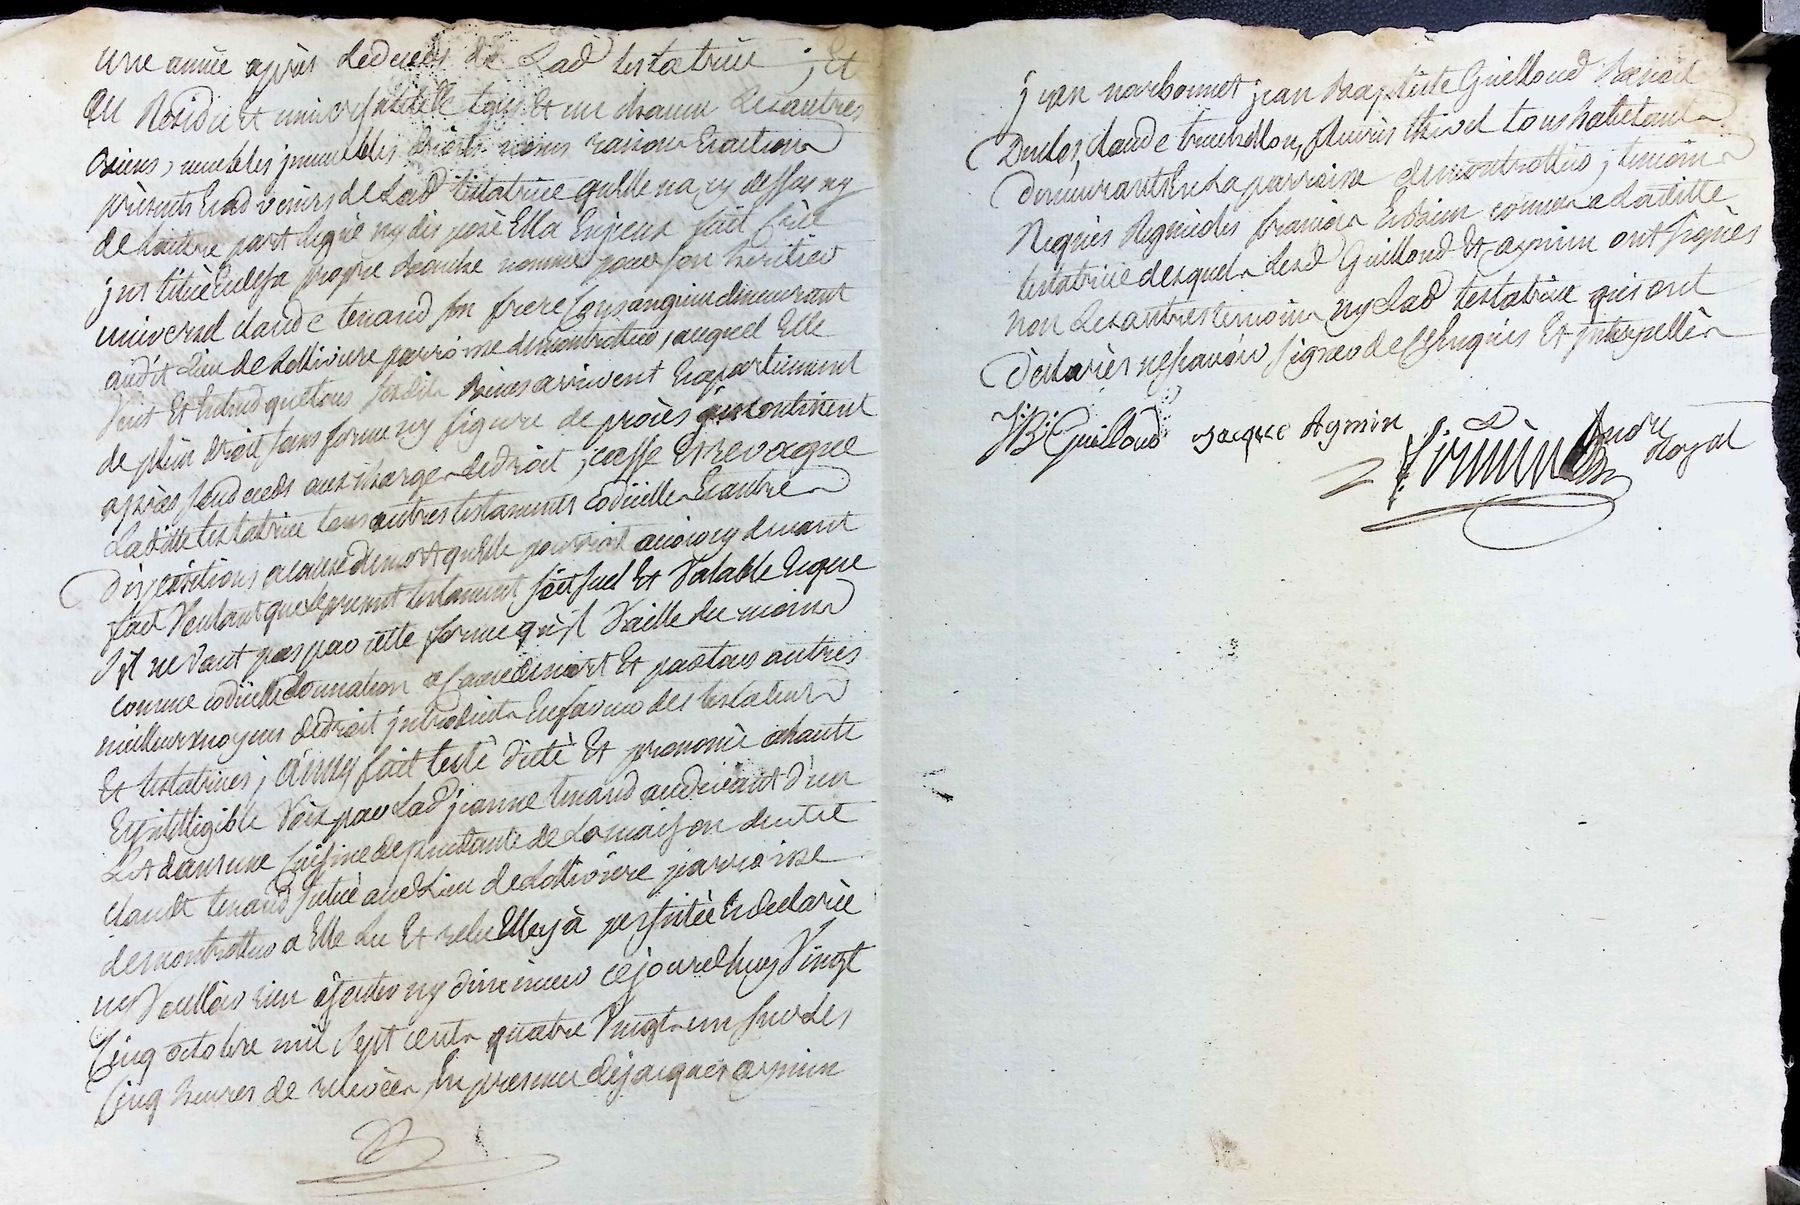 une année après le deceds de Lad testatrice ; Et
Au Residu et universalitté tous Et un chacun Les autres
Biens, meubles jmmeubles droits noms raisons Et actions
présents Et advenirs de Lad testatrice qu'Elle na cy dessus ny
de L'autre part legué ny disposé Ella En jceux fait Créé
jnstitué Et de sa propre bouche nommé pour son héritier
universel claude tenaud son frere Consanguin demeurant
audit Lieu de Lolliviere parroisse de montrottier, auquel Elle
veut Et Entend que tous sesdits Biens arrivent Et apartiennent
de plein droit sans forme ny figure de procès jncontinent
après sond deceds aux charges de droit ; casse Et revocque
Laditte testatrice tous autres testaments Codicilles Et autres
Dispositions a cause de mort qu'Elle pourroit avoir cy devant
fait Voulant que le present testament soit seul Et Valable Et que
s'jl ne Vaut pas par cette forme qu'jl Vaille du moins
comme codicille donnation a Cause de mort Et par tous autres
meilleurs moyens de droit jntroduits En faveur des testateurs
Et testatrices ; ainsy fait testé dicté Et prononcé a haute
Et jntelligible Voix par Lad jeanne tenaud au devant d'un
Lit dans une Cuisine dependante de La maison dudit
claude tenaud Scitué aud Lieu de Lolliviere parroisse
de montrottier a Elle Lu Et relu Elle y à persistée Et declarée
ny Vouloir rien ajouter ny diminuer cejourdhuy Vingt
Cinq octobre mil sept cents quatre Vingt un sur les
Cinq heures de relevée En presence de jacques aymin
jean narbonnet jean Baptiste Guilloud Benoit
Duclos, claude, thivel tous habitants
demeurants En La parroisse de montrottier, temoins
Requis Regnicoles Et Bien connus a Laditte
testatrice desquels Lesd Guilloud Et aymin ont signés
non Les autres temoins ny Lad testatrice qui ont
Déclarés ne sçavoir signer de ce Enquis Et jnterpellés
JB Guilloud jacque Aymin
Royal